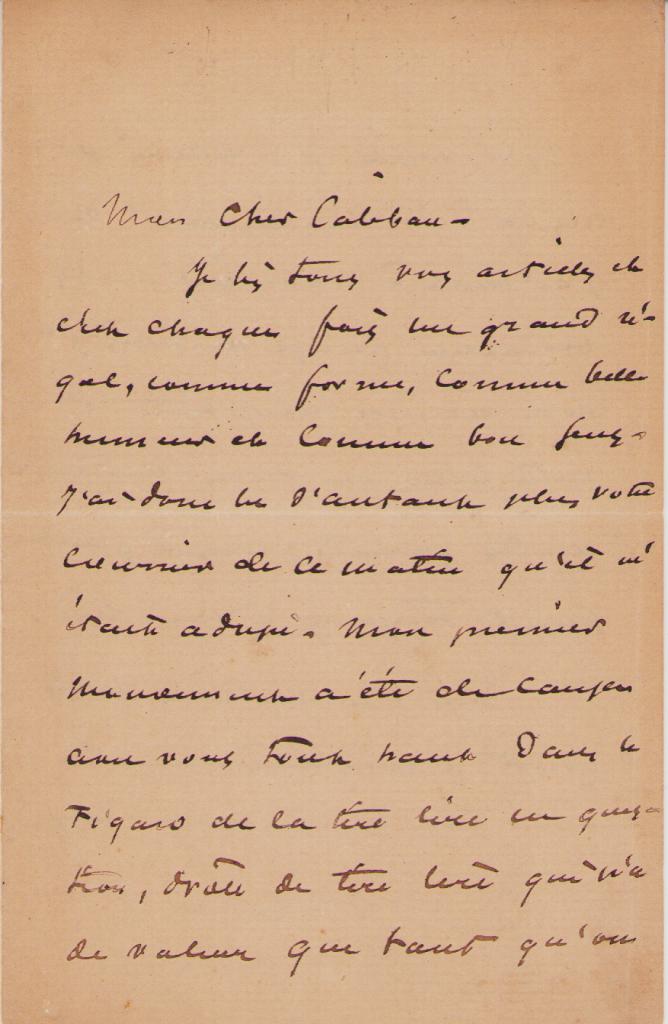 Mon cher Caliban -
Je lis tous vos articles et
c'est chaque fois un grand ré-
gal, comme forme, comme belle
humeur et comme bon sens -
J'ai donc lu d'autant plus votre
courrier de ce matin qu'il m'
était adressé. Mon premier
mouvement a été de causer
avec vous tout haut dans le
Figaro de la tire lire en ques-
tion, drôle de tire lire qui n'a
de valeur que tant qu'on